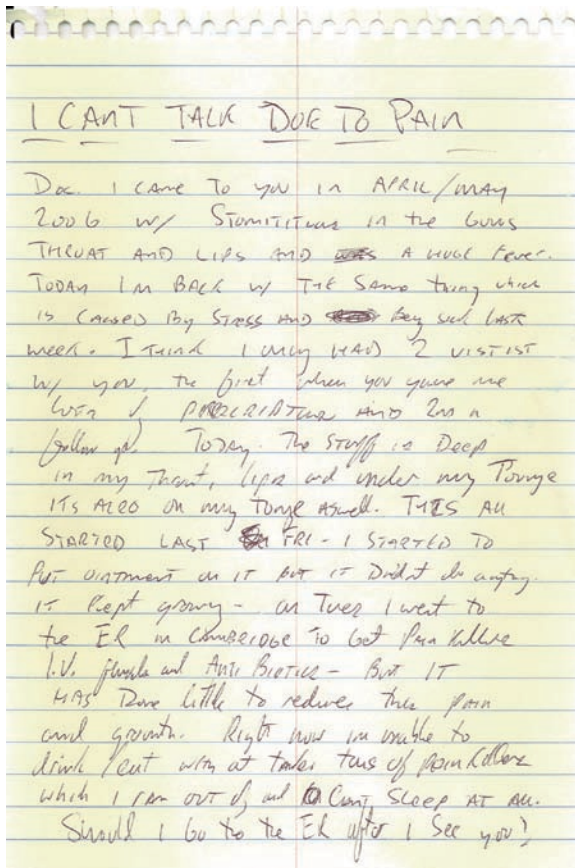 I CANT TALK DUE TO PAIN
Doc. I CAME TO YOU in APRIL/MAY
2006 w/ in the GUMS
THROAT AND LIPS AND A HUGE Fever.
TODAY IM BACK w/ THE SAME thing which
is CAUSED By STRESS AND Being sick LAST
week. I THINK I may HAD 2
w/ you, the first when you gave me
AND 2nd a
follow up. TODAY. The STUFF is Deep
in my Throat, lips and under my Tounge
ITs ALSO on my Tonge aswell. THIS All
STARTED LAST FRI - I STARTED TO
PUT ointment on IT but IT Didn't do
IT Kept growing - on Tues I went to
the ER in CAMBRIDGE To Get Pain Killers
I.V. fluids and Anti Biotics - But IT
HAS Done little to reduce the pain
and growth. Right now im unable to
drink/eat with tons of pain killers
which I ran OUT of, and Cant SLEEP AT All.
Should I Go to the ER after I See you?